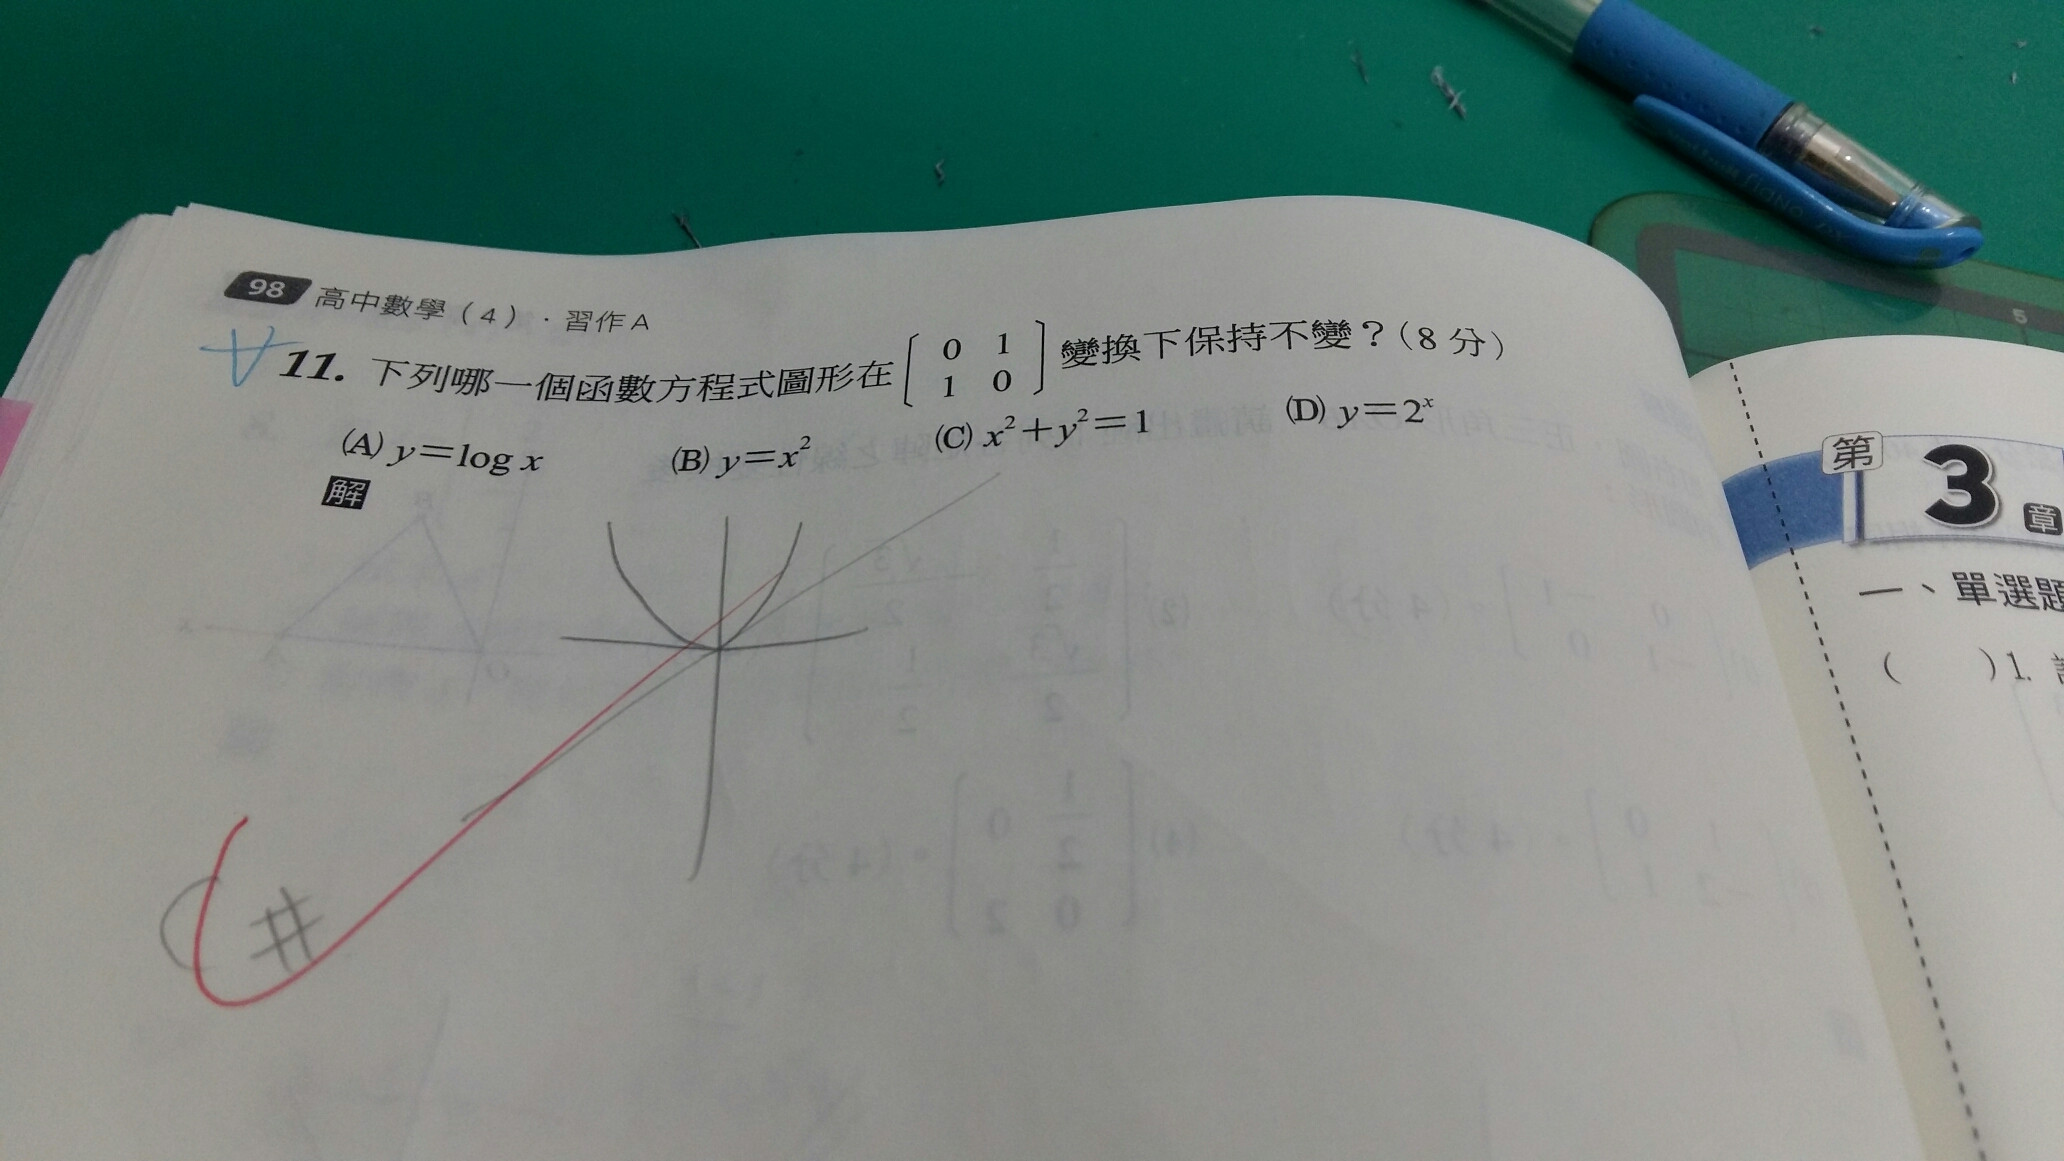 98 高中數學(4)．習作A
11. 下列哪一個函數方程式圖形在 [0 1
1 0] 變換下保持不變？(8分)
(A) y＝log x (B) y＝x² (C) x²＋y²＝1 (D) y＝2ˣ
解
C #
第3章
一、單選題
( )1.
5